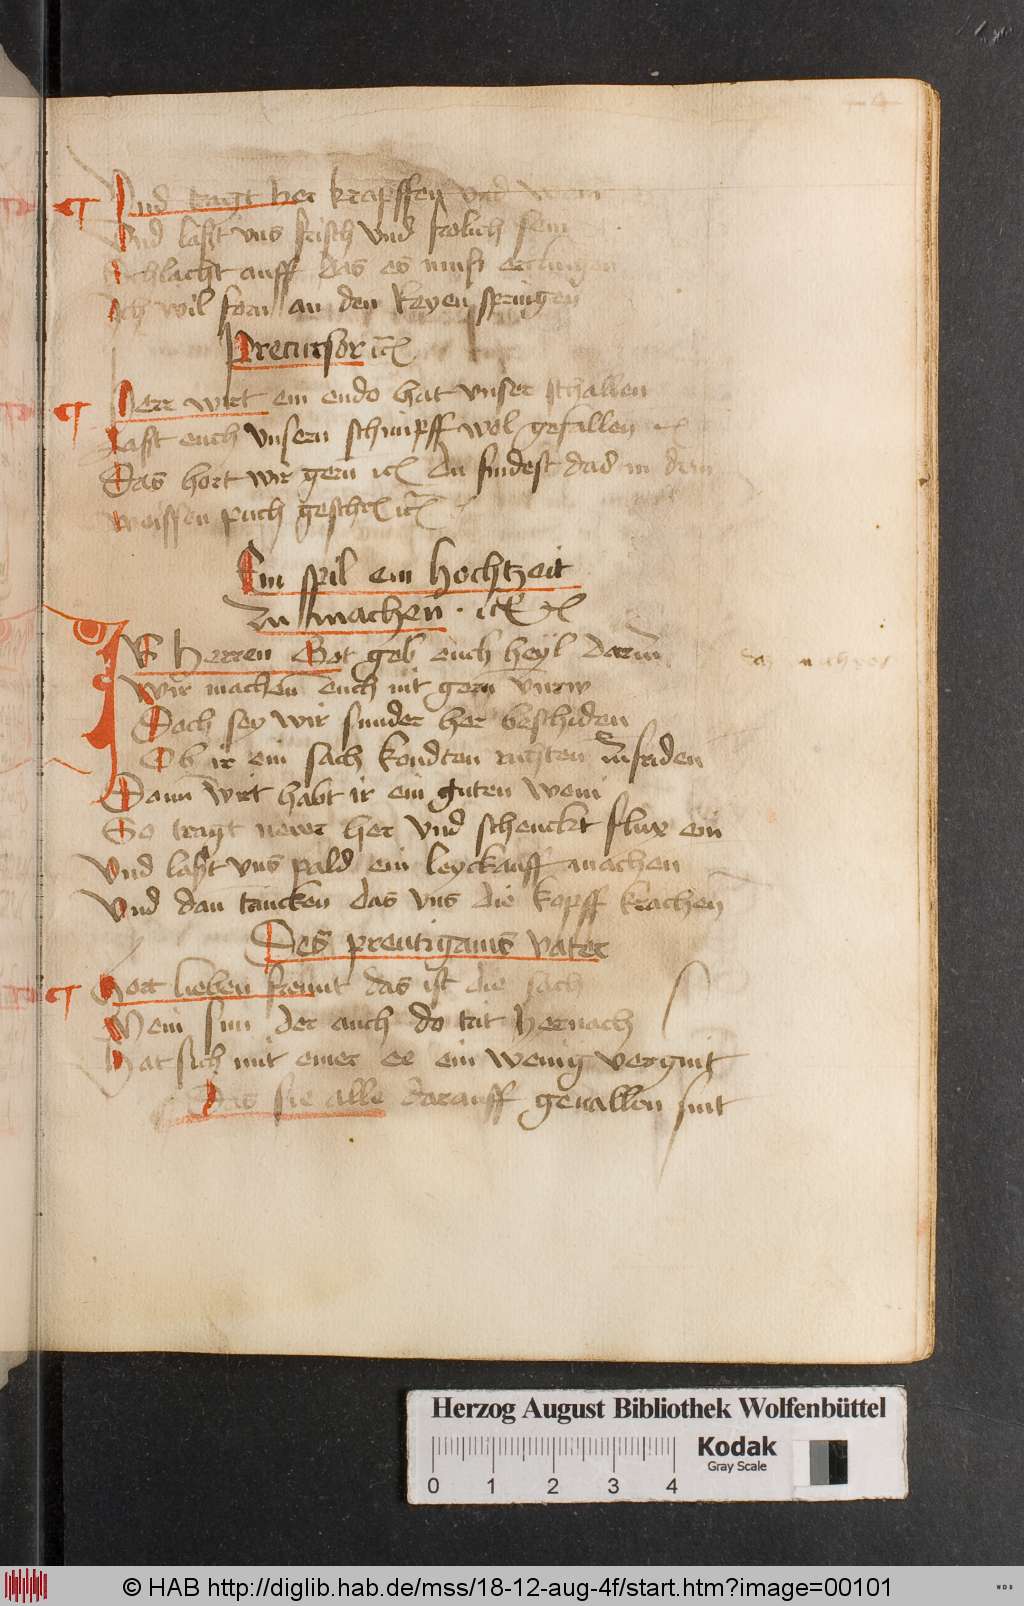 Und tragt her krapffen vnd wein
Vnd laßt vns frisch vnd frolich sein
Schlacht auff das es muß erclingen
Ich wil forn an den Reyen springen
Precursor
Herr wirt ein ende hat vnser schallen
Last euch vnsern schimpff wol gefallen
Das hort wir gern du findest das in dem
weissen puch
Ein spil ein hochtzeit
zu machen
Ir Herren Got geb euch heyl darin
Wir machen euch nit gern vnrw
Doch sey wir sunder her beschiden
Ob ir ein sach kondten richten zu friden
Dann wirt habt ir ein guten wein
So tragt newr her vnd schenckt flux ein
Vnd laßt vns pald ein leyckauff machen
Vnd dan trincken das vns die kopff krachen
Des preutigams vater
Hort lieben freunt das ist die sach
Mein sun der auch do trit hernach
Hat sich mit einer ee ein wenig vergint
Das sie alle darauff geuallen sint
Herzog August Bibliothek Wolfenbüttel
Kodak
Gray Scale
0 1 2 3 4
© HAB http://diglib.hab.de/mss/18-12-aug-4f/start.htm?image=00101